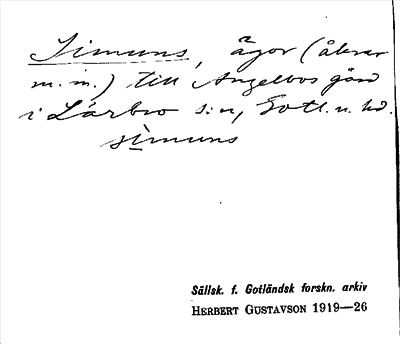 Simuns, ägor (åkrar
m. m.) till Angelbos gård
i Lärbro s:n, Gotl. n. hd.
simuns
Sällsk. f. Gotländsk forskn. arkiv
HERBERT GUSTAVSON 1919—26